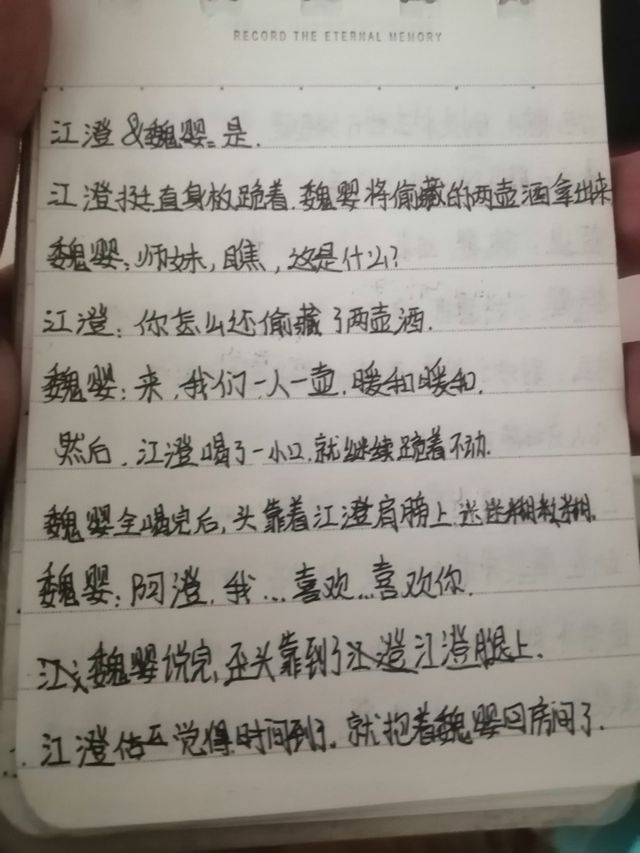 RECORD THE ETERNAL MEMORY
江澄&魏婴=是.
江澄挺直身板跪着.魏婴将偷藏的两壶酒拿出来
魏婴:师妹,瞧,这是什么?
江澄:你怎么还偷藏了两壶酒.
魏婴:来,我们一人一壶,暖和暖和.
然后,江澄喝了一小口,就继续跪着不动.
魏婴全喝完后,头靠着江澄肩膀上,迷迷糊糊糊.
魏婴:阿澄,我...喜欢...喜欢你.
魏婴说完,歪头靠到了江澄腿上.
江澄估 觉得时间到了,就抱着魏婴回房间了.